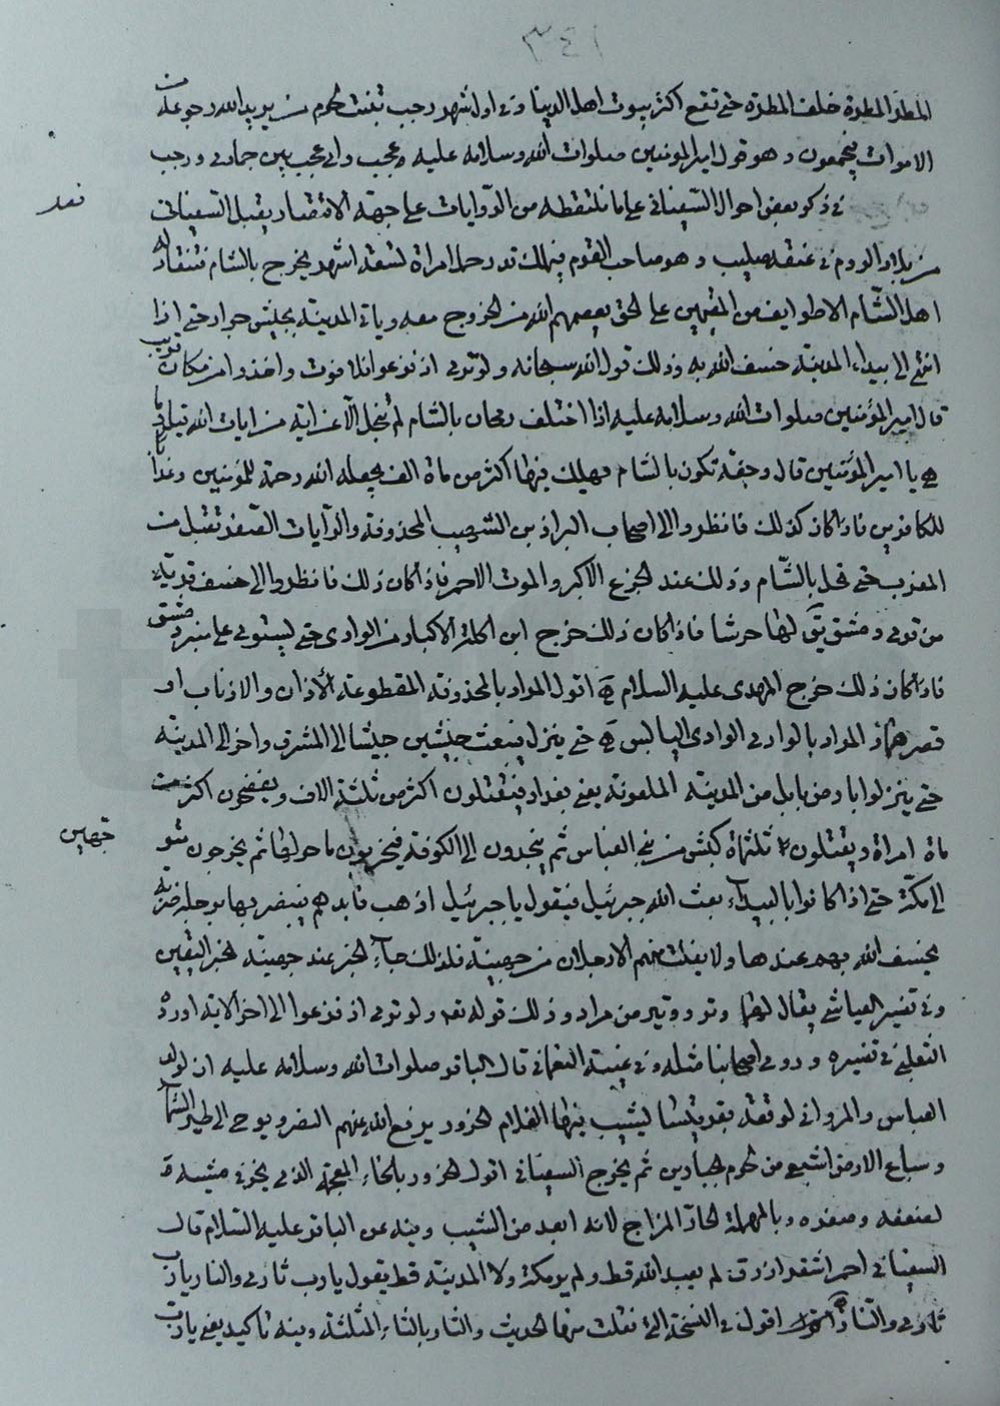 ٣٤١
المطر المطرة خلف المطرة حتى تقع اكثر بيوت اهل الدنيا وفي اول شهر رجب تنبت لحوم من يريد الله رجوعه من
الاموات فيجمعون وهو قول امير المؤمنين صلوات الله وسلامه عليه عجب واي عجب بين جمادى ورجب
في ذكر بعض احوال السفياني على ما نلتقطه من الروايات على جهة الاقتصار يقبل السفياني
من بلاد الروم في عنقه صليب وهو صاحب القوم فيملك قدر حمل امراة تسعة اشهر يخرج بالشام فتنقاد له
اهل الشام الا طوايف من المقيمين على الحق يعصمهم الله من الخروج معه وياتي المدينة بجيش جرار حتى اذا
انتهى الى بيداء المدينة خسف الله به وذلك قول الله سبحانه ولو ترى اذ فزعوا فلا فوت واخذوا من مكان قريب
قال امير المؤمنين صلوات الله وسلامه عليه اذا اختلف رمحان بالشام لم تنجل الا عن اية من ايات الله قيل وما
هي يا امير المؤمنين قال رجفة تكون بالشام فيهلك فيها اكثر من ماة الف يجعله الله رحمة للمؤمنين وعذابا
للكافرين فاذا كان كذلك فانظروا الى اصحاب البراذين الشهب المحذوفة والرايات الصفر تقبل من
المغرب حتى تحل بالشام وذلك عند الجزع الاكبر والموت الاحمر فاذا كان ذلك فانظروا الى خسف قرية
من قرى دمشق يق لها حرشا فاذا كان ذلك خرج ابن اكلة الاكباد من الوادي حتى يستوي على منبر دمشق
فاذا كان ذلك خرج المهدى عليه السلام اقول المراد بالمحذوفة المقطوعة الاذان والاذناب او
قصرهما والمراد بالوادي الوادي اليابس حتى ينزل فيبعث جيشين جيشا الى المشرق واخر الى المدينة
حتى ينزلوا بارض بابل من المدينة الملعونة يعني بغداد فيقتلون اكثر من ثلثة الاف ويفضحون اكثر من
ماة امراة ويقتلون ثلثماة كبش من بني العباس ثم ينحدرون الى الكوفة فيخربون ما حولها ثم يخرجون متو
جهين
الى مكة حتى اذا كانوا بالبيداء بعث الله جبرئيل فيقول يا جبرئيل اذهب فابدهم فيضربها برجله ضربة
يخسف الله بهم عندها ولا يفلت منهم الا رجلان من جهينة فلذلك جاء الخبر عند جهينة الخبر اليقين
وفي تفسير العياشي يقال لهما وتر ووتير من مراد وذلك قوله تعالى ولو ترى اذ فزعوا الى اخر الاية اورده
الثعلبي في تفسيره وروى اصحابنا مثله وفي غيبة النعماني قال الباقر صلوات الله وسلامه عليه ان لولد
العباس والمرواني لوقعة بقرقيسا يشيب فيها الغلام الحزور يرفع الله عنهم النصر ويوحى الى طير السماء
وسباع الارض اشبعي من لحوم الجبارين ثم يخرج السفياني اقول الحزور بالخاء المعجمة الذي يخزر في مشيه
لضعفه وصغره وبالمهملة الحار المزاج لانه ابعد من الشيب وفيه عن الباقر عليه السلام قال
السفياني احمر اشقر ازرق لم يعبد الله قط ولم ير مكة ولا المدينة قط يقول يا رب ثاري والنار يا رب
ثاري والنار اقول في النسخة التي نقلت منها الحديث والثار بالثاء المثلثة وفيه تاكيد يعني يا رب